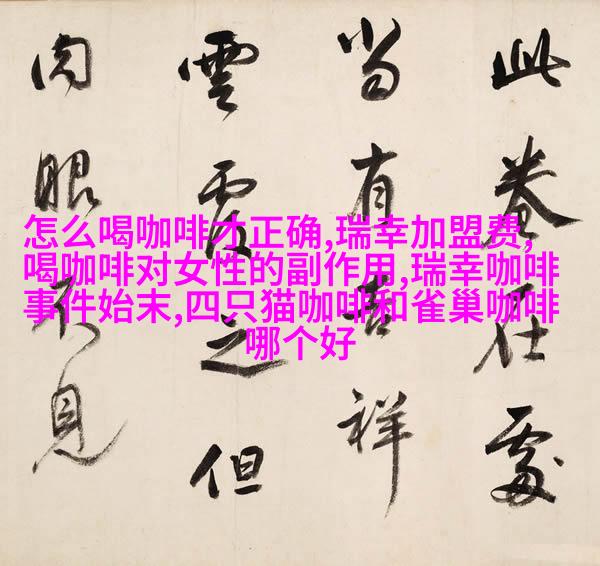 此卷在處
當有吉祥
雲覆之但
肉眼不見
怎么喝咖啡才正确,瑞幸加盟费,
喝咖啡对女性的副作用,瑞幸咖啡
事件始末,四只猫咖啡和雀巢咖啡
哪个好